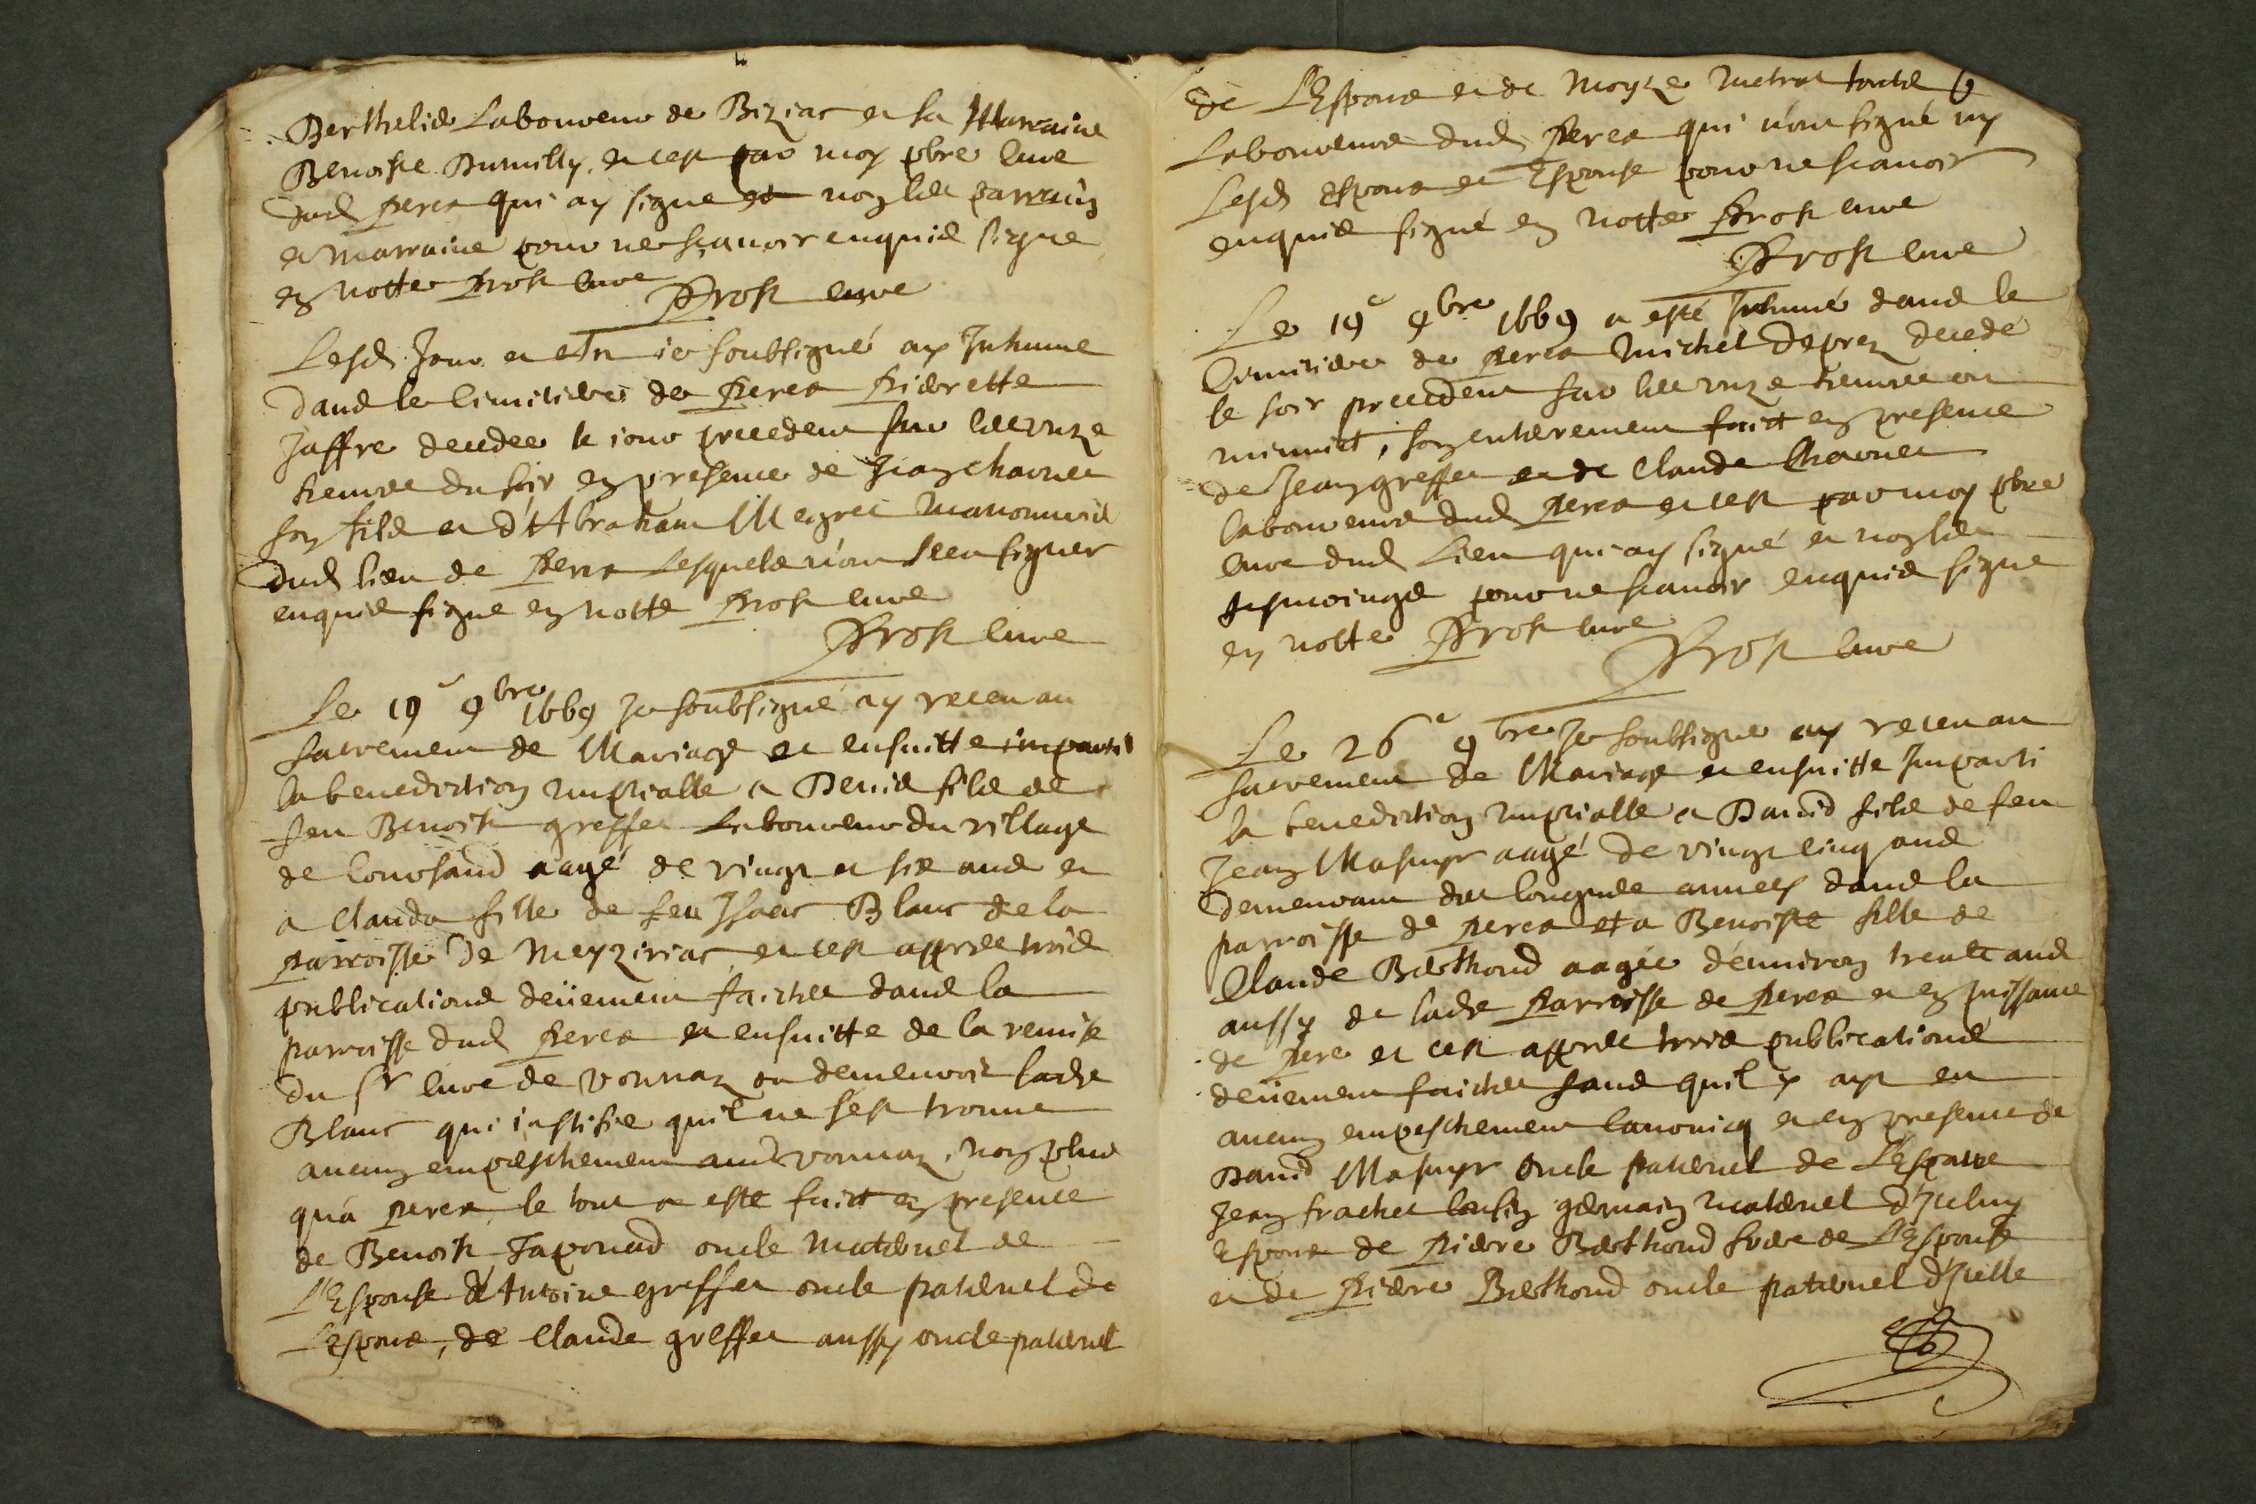 Berthelie Laboureur de Biziac et sa Marraine
Benoiste Dumilly, et cest par moy pbre Cure
dud Perex qui ay signe et non les parrain
et marraine pour ne scavoir enquis signe
en notte Prost Cure
Prost cure
Lesd Jour et an ie soubsigné ay Inhume
dans le Cimitiere de Perex Pierrette
Jaffre decedee le iour precedent sur les unze
heures du soir en presence de Jean
son fils et d'Abraham Megret
dud lieu de Perex Lesquels n'ont sceu signer
enquis signe en notte Prost cure
Prost Cure
Le 19e 9bre 1669 Je soubsigné ay receu au
sacrement de Mariage et ensuitte imparti
la benediction nuptialle a Denis fils de
feu Benoist greffet Laboureur du village
de Confrand aagé de vingt et six ans et
a Clauda fille de feu Isaac Blanc de la
parroisse de Mezeriac et cest appres trois
publications deüement faictes dans la
parroisse dud Perex et ensuitte de la remise
du Sr Cure de Vonnaz ou demeuroit ladte
Blanc qui iustifie quil ne sest trouve
aucun empeschement aud vonnaz, non plus
qu'a perex, le tout a este faict en presence
de Benoist Taponad oncle maternel de
L'Espouse d'Antoine greffet oncle paternel de
Lespoux, de Claude greffet aussy oncle paternel
de L'Espoux et de Moyze metrat touts
Laboureurs dud Perex qui n'ont signé ny
Lesd Espoux et Espouse pour ne scavoir
enquis signé en notte Prost cure
Prost cure
Le 19e 9bre 1669 a esté Inhumé dans le
Cimitiere de Perex Michel Deprez decedé
le soir precedent sur les unze heures ou
minuict, son enterement faict en presence
de Jean greffet et de Claude
laboureurs dud Perex et cest par moy pbre
cure dud Lieu qui ay signé et non les
tesmoings pour ne scavoir enquis signe
en notte Prost cure
Prost cure
Le 26e 9bre Je soubsigne ay receu au
sacrement de Mariage et ensuitte Imparti
la benediction nuptialle a David fils de feu
Jean Masuyr aagé de vingt cinq ans
demeurant des longues annees dans la
parroisse de perex et a Benoiste fille de
Claude Berthoud aagée d'environ trente ans
aussy de ladte Parroisse de Perex et en puissance
de pere et cest appres trois publications
deüement faictes sans quil y ayt eu
aucun empeschement canonicq et en presence de
David Masuyr oncle paternel de L'Espoux
Jean frachet cousin germain maternel d'Iceluy
Espoux de Pierre Berthoud frere de L'Espouse
et de Pierre Berthoud oncle paternel d'Icelle